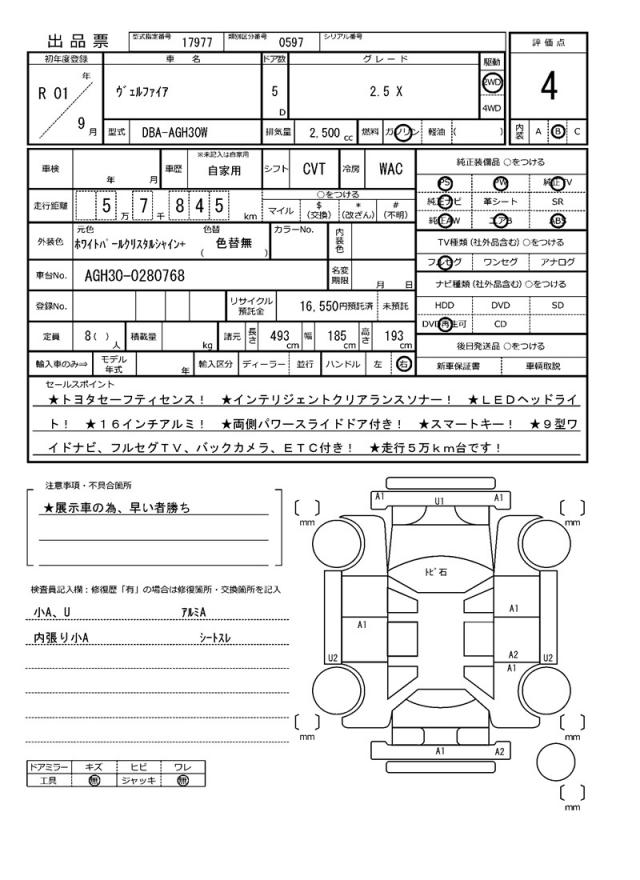 出品票 型式指定番号 17977 類別区分番号 0597 シリアル番号
初年度登録 車名 ドア数 グレード 駆動 評価点
R 01 年 9 月 ヴェルファイア 5 D 2.5 X 2WD 4WD 4
型式 DBA-AGH30W 排気量 2,500 cc 燃料 ガソリン 軽油 ( ) 内装 A B C
車検 年 月 車歴 ※未記入は自家用 自家用 シフト CVT 冷房 WAC 純正装備品 ○をつける
PS PW 純正TV
走行距離 5 万 7 千 8 4 5 km ○をつける 純正ナビ 革シート SR
マイル $ (交換) * (改ざん) # (不明) 純正AW エアB ABS
外装色 元色 ホワイトパールクリスタルシャイン+ 色替 ( 色替無 ) カラーNo. 内装色 TV種類(社外品含む)○をつける
フルセグ ワンセグ アナログ
車台No. AGH30-0280768 名変期限 月 日 ナビ種類(社外品含む)○をつける
登録No. リサイクル預託金 16,550円預託済 未預託 HDD DVD SD
DVD再生可 CD
定員 8( ) 人 積載量 kg 諸元 長さ 493 cm 幅 185 cm 高さ 193 cm 後日発送品 ○をつける
輸入車のみ⇒ モデル年式 年 輸入区分 ディーラー 並行 ハンドル 左 右 新車保証書 車輌取説
セールスポイント
★トヨタセーフティセンス! ★インテリジェントクリアランスソナー! ★LEDヘッドライ
ト! ★16インチアルミ! ★両側パワースライドドア付き! ★スマートキー! ★9型ワ
イドナビ、フルセグTV、バックカメラ、ETC付き! ★走行5万km台です!
注意事項・不具合箇所
★展示車の為、早い者勝ち
検査員記入欄:修復歴「有」の場合は修復箇所・交換箇所を記入
小A、U アルミA
内張り小A シートスレ
ドアミラー キズ ヒビ ワレ
工具 無 ジャッキ 無
A1 U1 A1
mm mm
トビ石
A1 A1
U2 A2 U2
A1
mm mm
A1 A2
mm